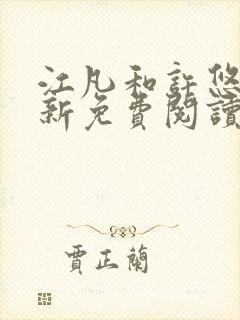 江凡和許悠
新免費閱讀
賈正蘭